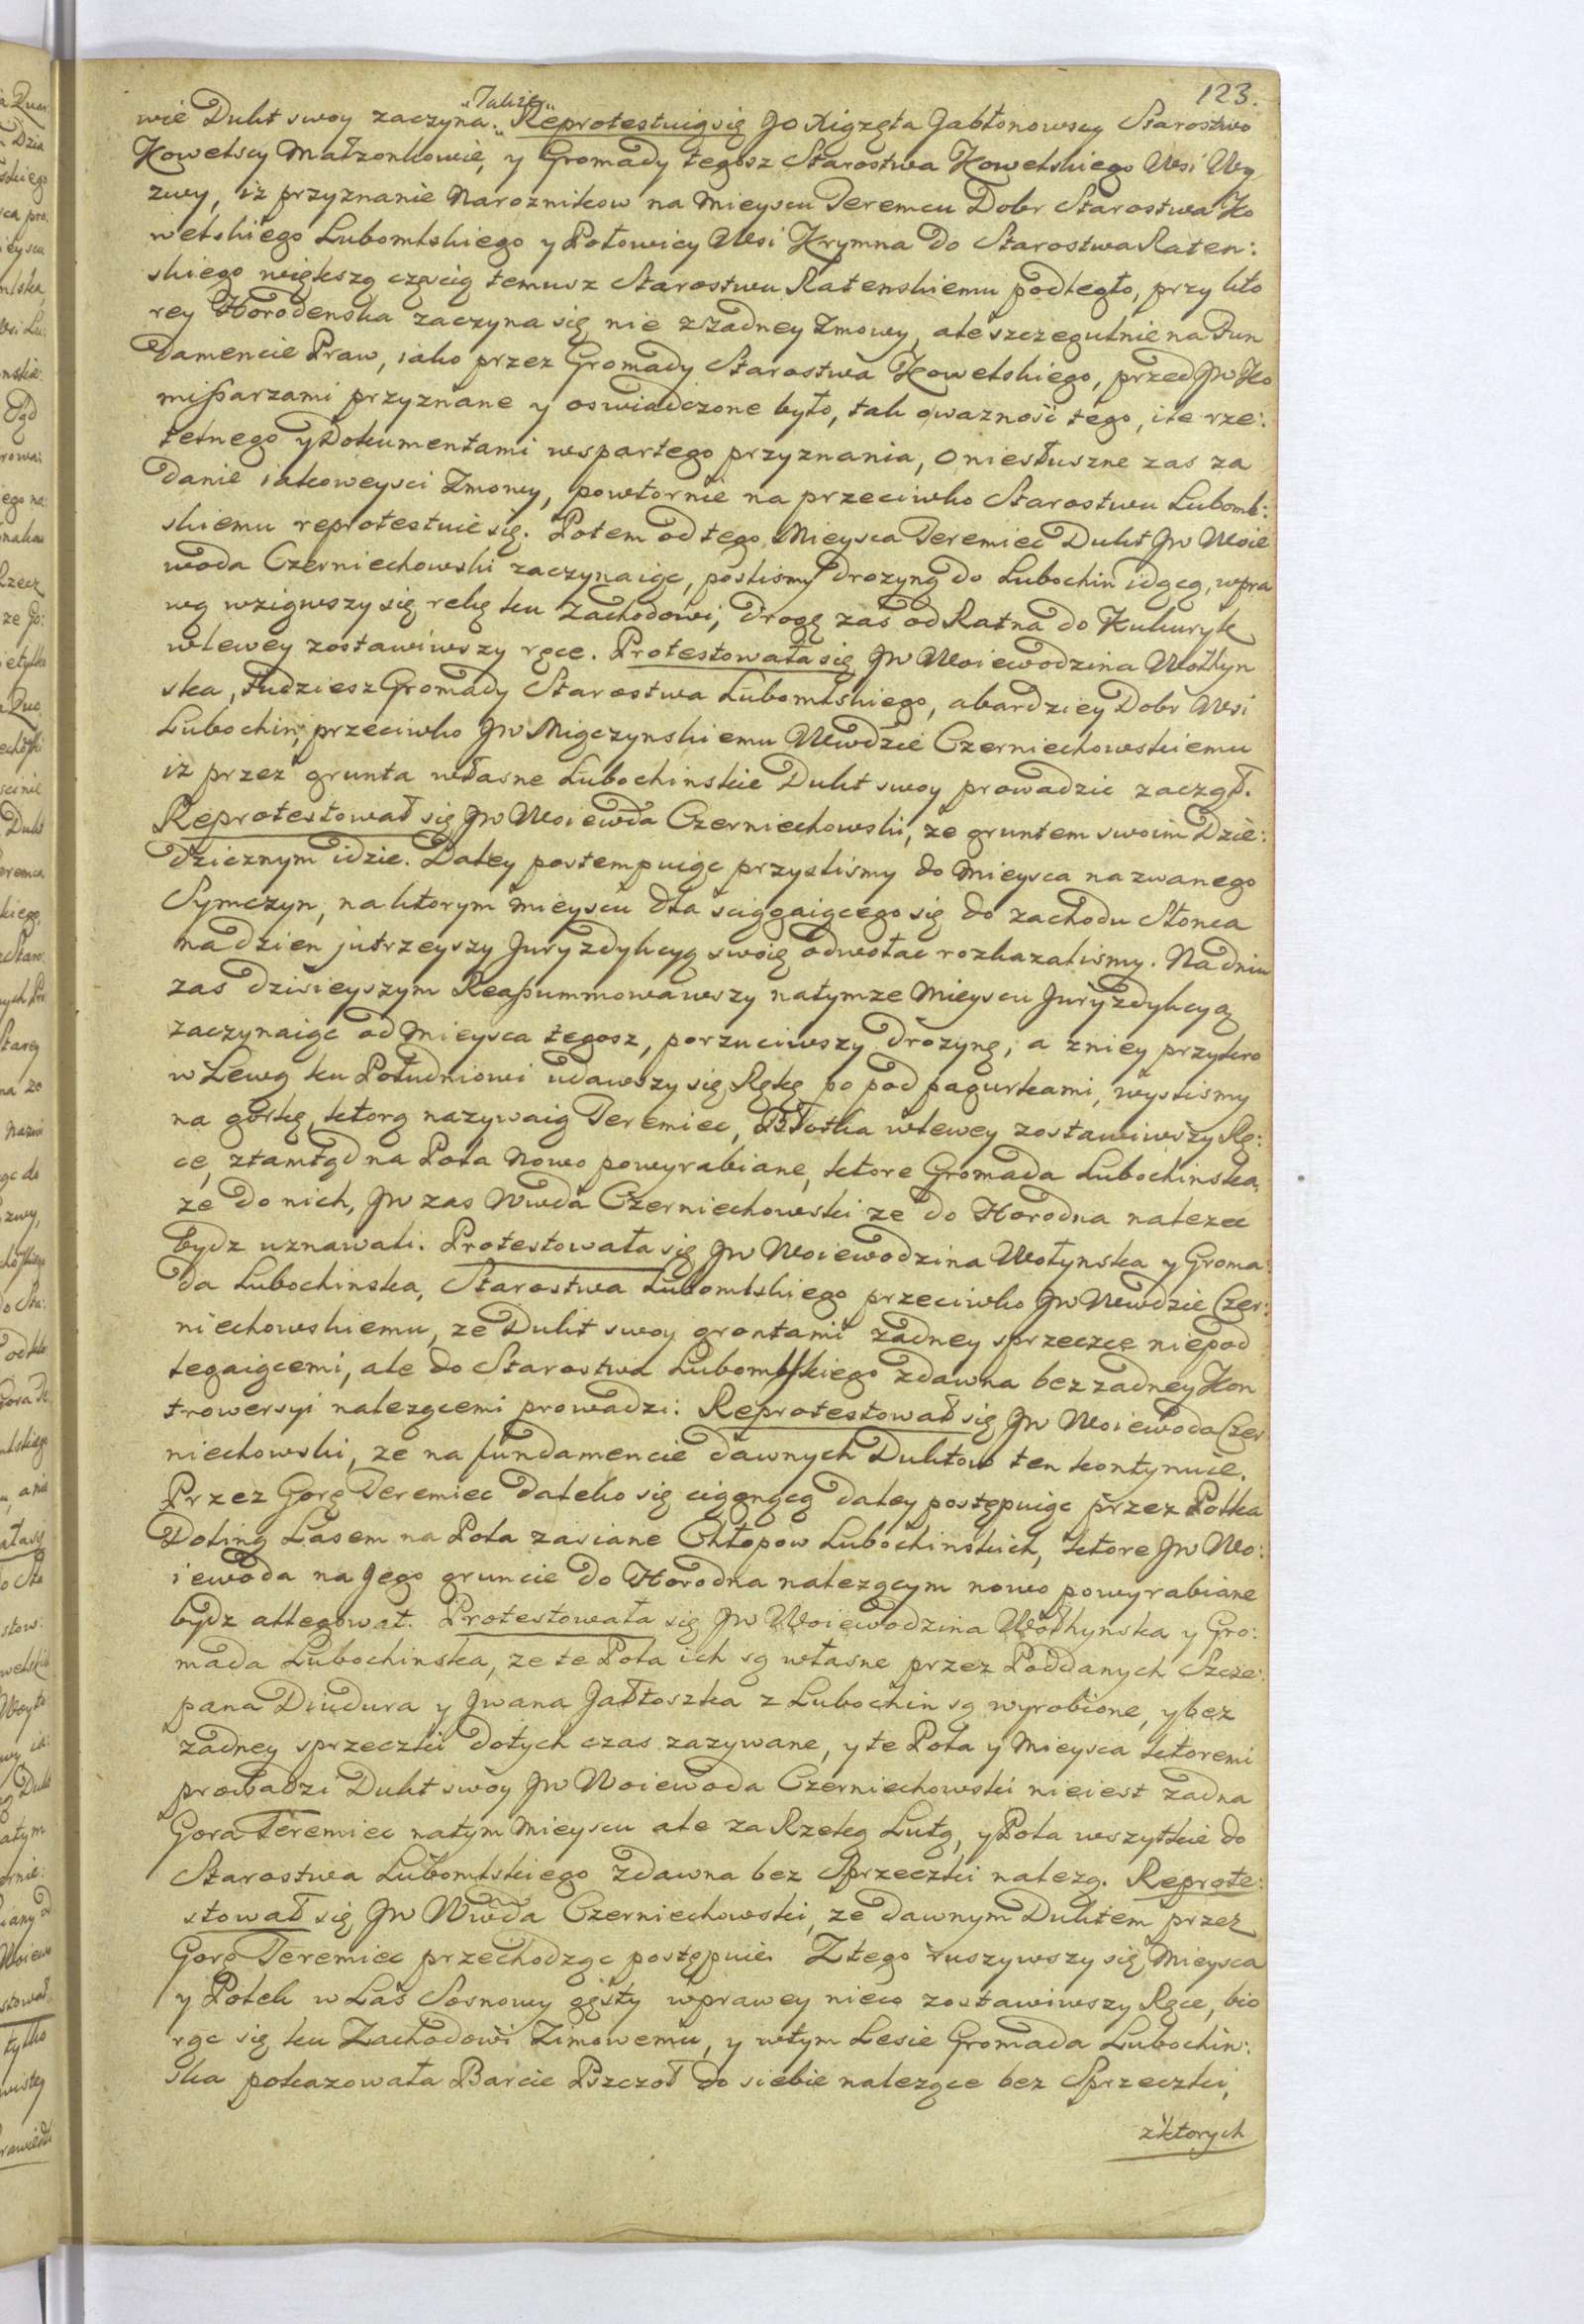 123.
wie Dukt swoy zaczyna. „Takze„ Reprotestuią się JO Xiązęta Jabłonowscy Starostwo
Kowelscy Małzonkowie, y Gromady tegosz Starostwa Kowelskiego Wsi Wy
zwy, iż przyznanie Naroznikow na Mieyscu Teremcu Dobr Starostwa Ko
welskiego Lubomlskiego y Połowicy Wsi Krymna do Starostwa Raten:
skiego większą częscią temusz Starostwu Ratenskiemu podległo, przy kto
rey Horodenska zaczyna się nie z zadney Zmowy, ale szczegulnie na Fun
damencie Praw, iako przez Gromady Starostwa Kowelskiego, przed JW Ko
missarzami przyznane y oswiadczone było, tak o waznosć tego, ile rze:
telnego y Dokumentami wspartego przyznania, o niesłuszne zas za
danie iakoweysci Zmowy, powtornie na przeciwko Starostwu Luboml:
skiemu reprotestuie się. Potem od tego Mieysca Teremiec Dukt JW Woie
woda Czerniechowski zaczynaiąc, poslismy drozyną do Lubochin idącą, w pra
wą wziąwszy się rękę ku Zachodowi, drogę zaś od Ratna do Kukuryk
w lewey zostawiwszy ręce. Protestowała się JW Woiewodzina Wołhyn
ska, tudziesz Gromady Starostwa Lubomlskiego, a bardziey Dobr Wsi
Lubochin, przeciwko JW Miączynskiemu Wwdzie Czerniechowskiemu
iż przez grunta własne Lubochinskie Dukt swoy prowadzic zaczął.
Reprotestował się JW Woiewda Czerniechowski, ze gruntem swoim Dzie:
dzicznym idzie. Daley postempuiąc przyslismy do Mieysca nazwanego
Symczyn, na ktorym Mieyscu dla sciągaiącego się do zachodu Słonca
na dzien jutrzeyszy Juryzdykcyą swoię odwołac rozkazalismy. Na dniu
zas dzisieyszym Reassummowawszy na tymze Mieyscu Juryzdykcyą
zaczynaiąc od Mieysca tegosz, porzuciwszy drozynę, a z niey przykro
w Lewą ku Południowi udawszy się Rękę po pod pagurkami, wyslismy
na gorkę, ktorą nazywaią Teremiec, Błotka w lewey zostawiwszy Rę:
ce, ztamtąd na Pola Nowo powyrabiane, ktore Gromada Lubochinska,
ze do nich, JW zas Wwda Czerniechowski ze do Horodna nalezec
bydz uznawali. Protestowała się JW Woiewodzina Wołynska y Groma:
da Lubochinska, Starostwa Lubomlskiego przeciwko JW Wwdzie Czer:
niechowskiemu, ze Dukt swoy grontami zadney sprzeczce niepod
legaiącemi, ale do Starostwa Lubomlskiego zdawna bez zadney Kon
trowersyi nalezącemi prowadzi: Reprotestował się JW Woiewoda Czer
niechowski, ze na fundamencie dawnych Duktow ten kontynuie.
Przez Gorę Teremiec daleko się ciągnącą daley postępuiąc przez Polka
Doliną Lasem na Pola zasiane Chłopow Lubochinskich, ktore JW Wo:
iewoda na Jego gruncie do Horodna nalezącym nowo powyrabiane
bydz allegował. Protestowała się JW Woiewodzina Wołhynska y Gro:
mada Lubochinska, ze te Pola ich są własne przez Poddanych Szcze:
pana Diudura y Jwana Jałłoszka z Lubochin są wyrobione, y bez
zadney sprzeczki dotych czas zazywane, y te Pola y Mieysca ktoremi
prowadzi Dukt swoy JW Woiewoda Czerniechowski nieiest zadna
Gora Teremiec na tym Mieyscu ale za Rzeką Lutą, y Pola wszytkie do
Starostwa Lubomlskiego zdawna bez Sprzeczki nalezą. Reprote:
stował się JW Wwda Czerniechowski, ze dawnym Duktem przez
Gorę Teremiec przechodząc postępuie. Z tego ruszywszy się Mieysca
y Polek w Las Sosnowy gęsty w prawey nieco zostawiwszy Ręce, bio
rąc się ku Zachodowi Zimowemu, y w tym Lesie Gromada Lubochin:
ska pokazowała Barcie Pszczoł do siebie nalezące bez Sprzeczki,
z ktorych